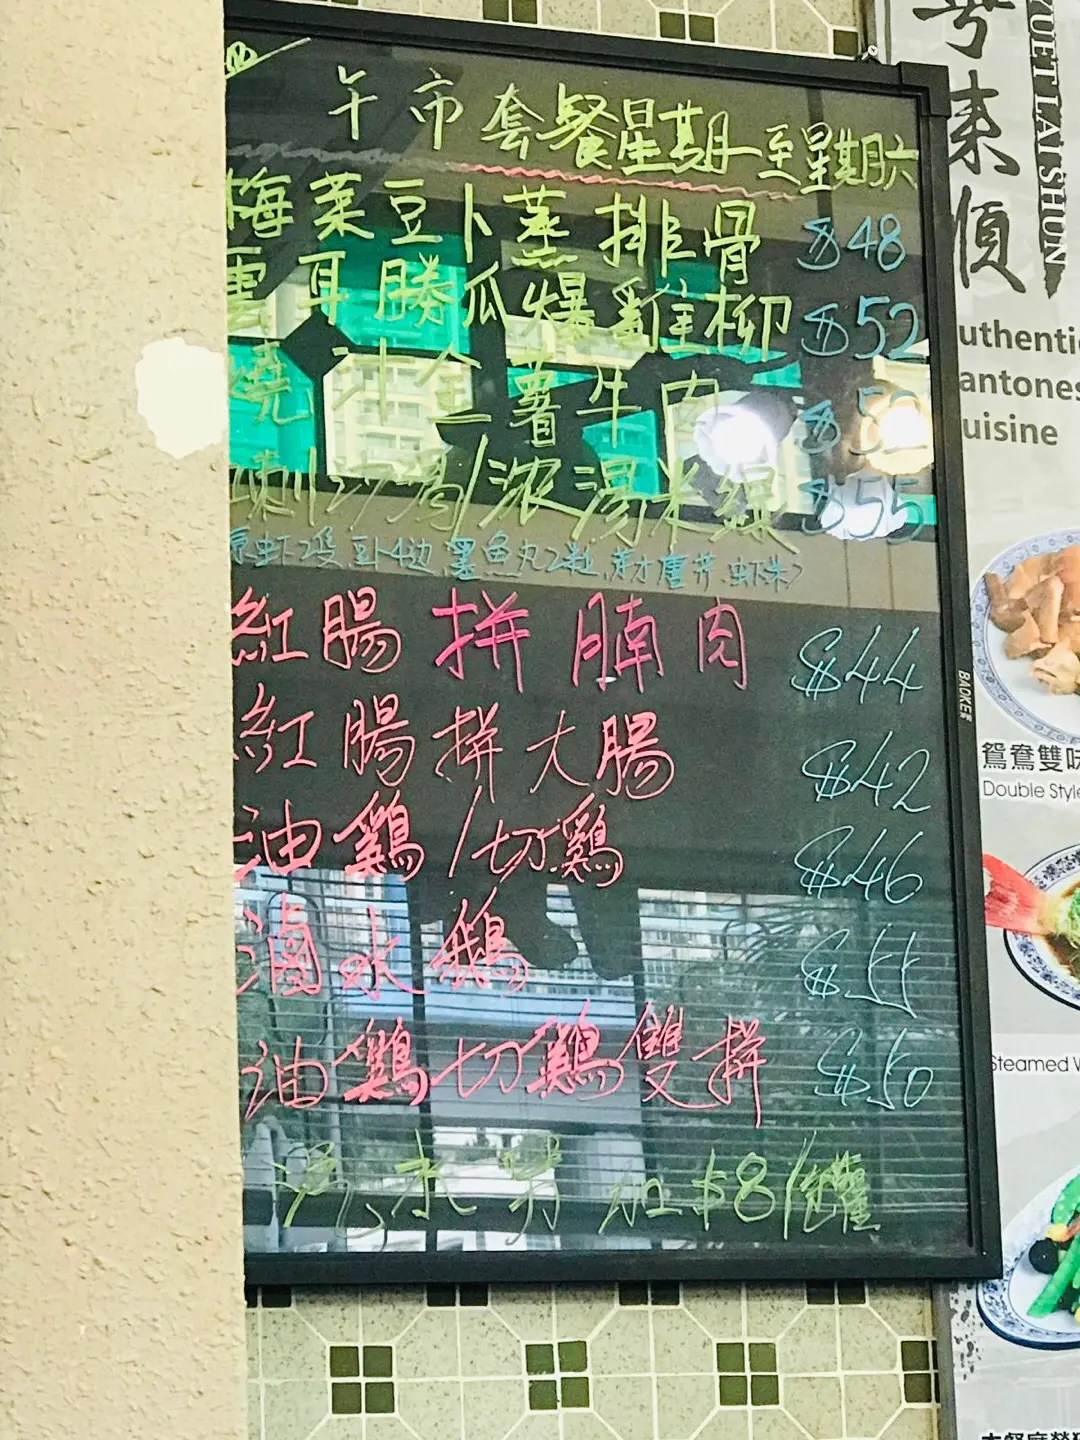 午市套餐星期一至星期六
梅菜豆卜蒸排骨 $48
雲耳勝瓜爆雞柳 $52
燒汁金薯牛肉 $52
喇沙湯/浓湯米線 $55
紅腸拼腩肉 $44
紅腸拼大腸 $42
油鷄/切鷄 $46
滷水鵝 $55
油鷄切鷄雙拼 $50
汽水 加$8/罐
粵來順
YUET LAI SHUN
uthentic
antones
uisine
BAOKE
鴛鴦雙味
Double Style
Steamed W